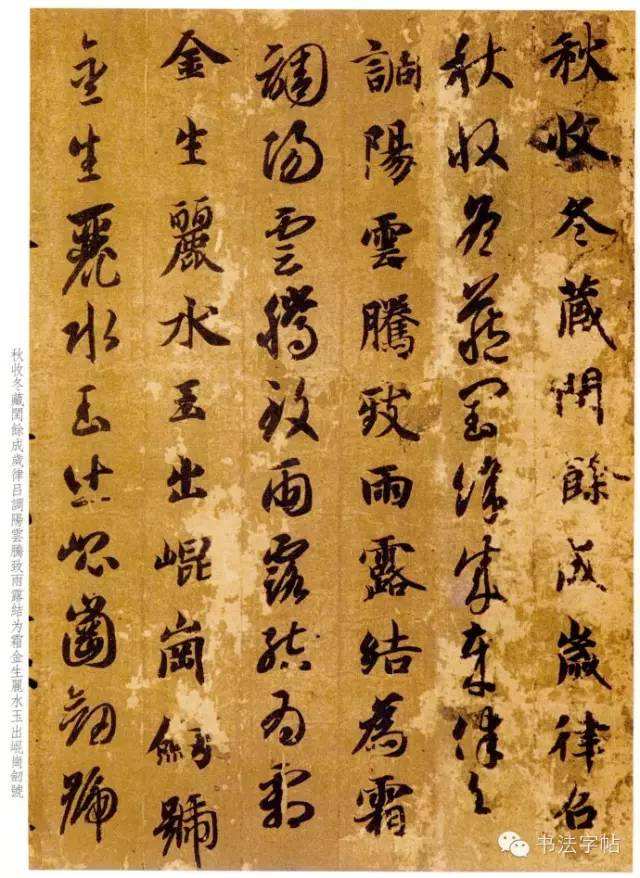 秋收冬藏閏餘成歲律召
秋收冬藏閏餘成歲律召
調陽雲騰致雨露結為霜
調陽雲騰致雨露結為霜
金生麗水玉出崐崗號
金生麗水玉出崐崗劒號
秋收冬藏閏餘成歲律呂調陽雲騰致雨露結为霜金生麗水玉出崐崗劒號
书法字帖